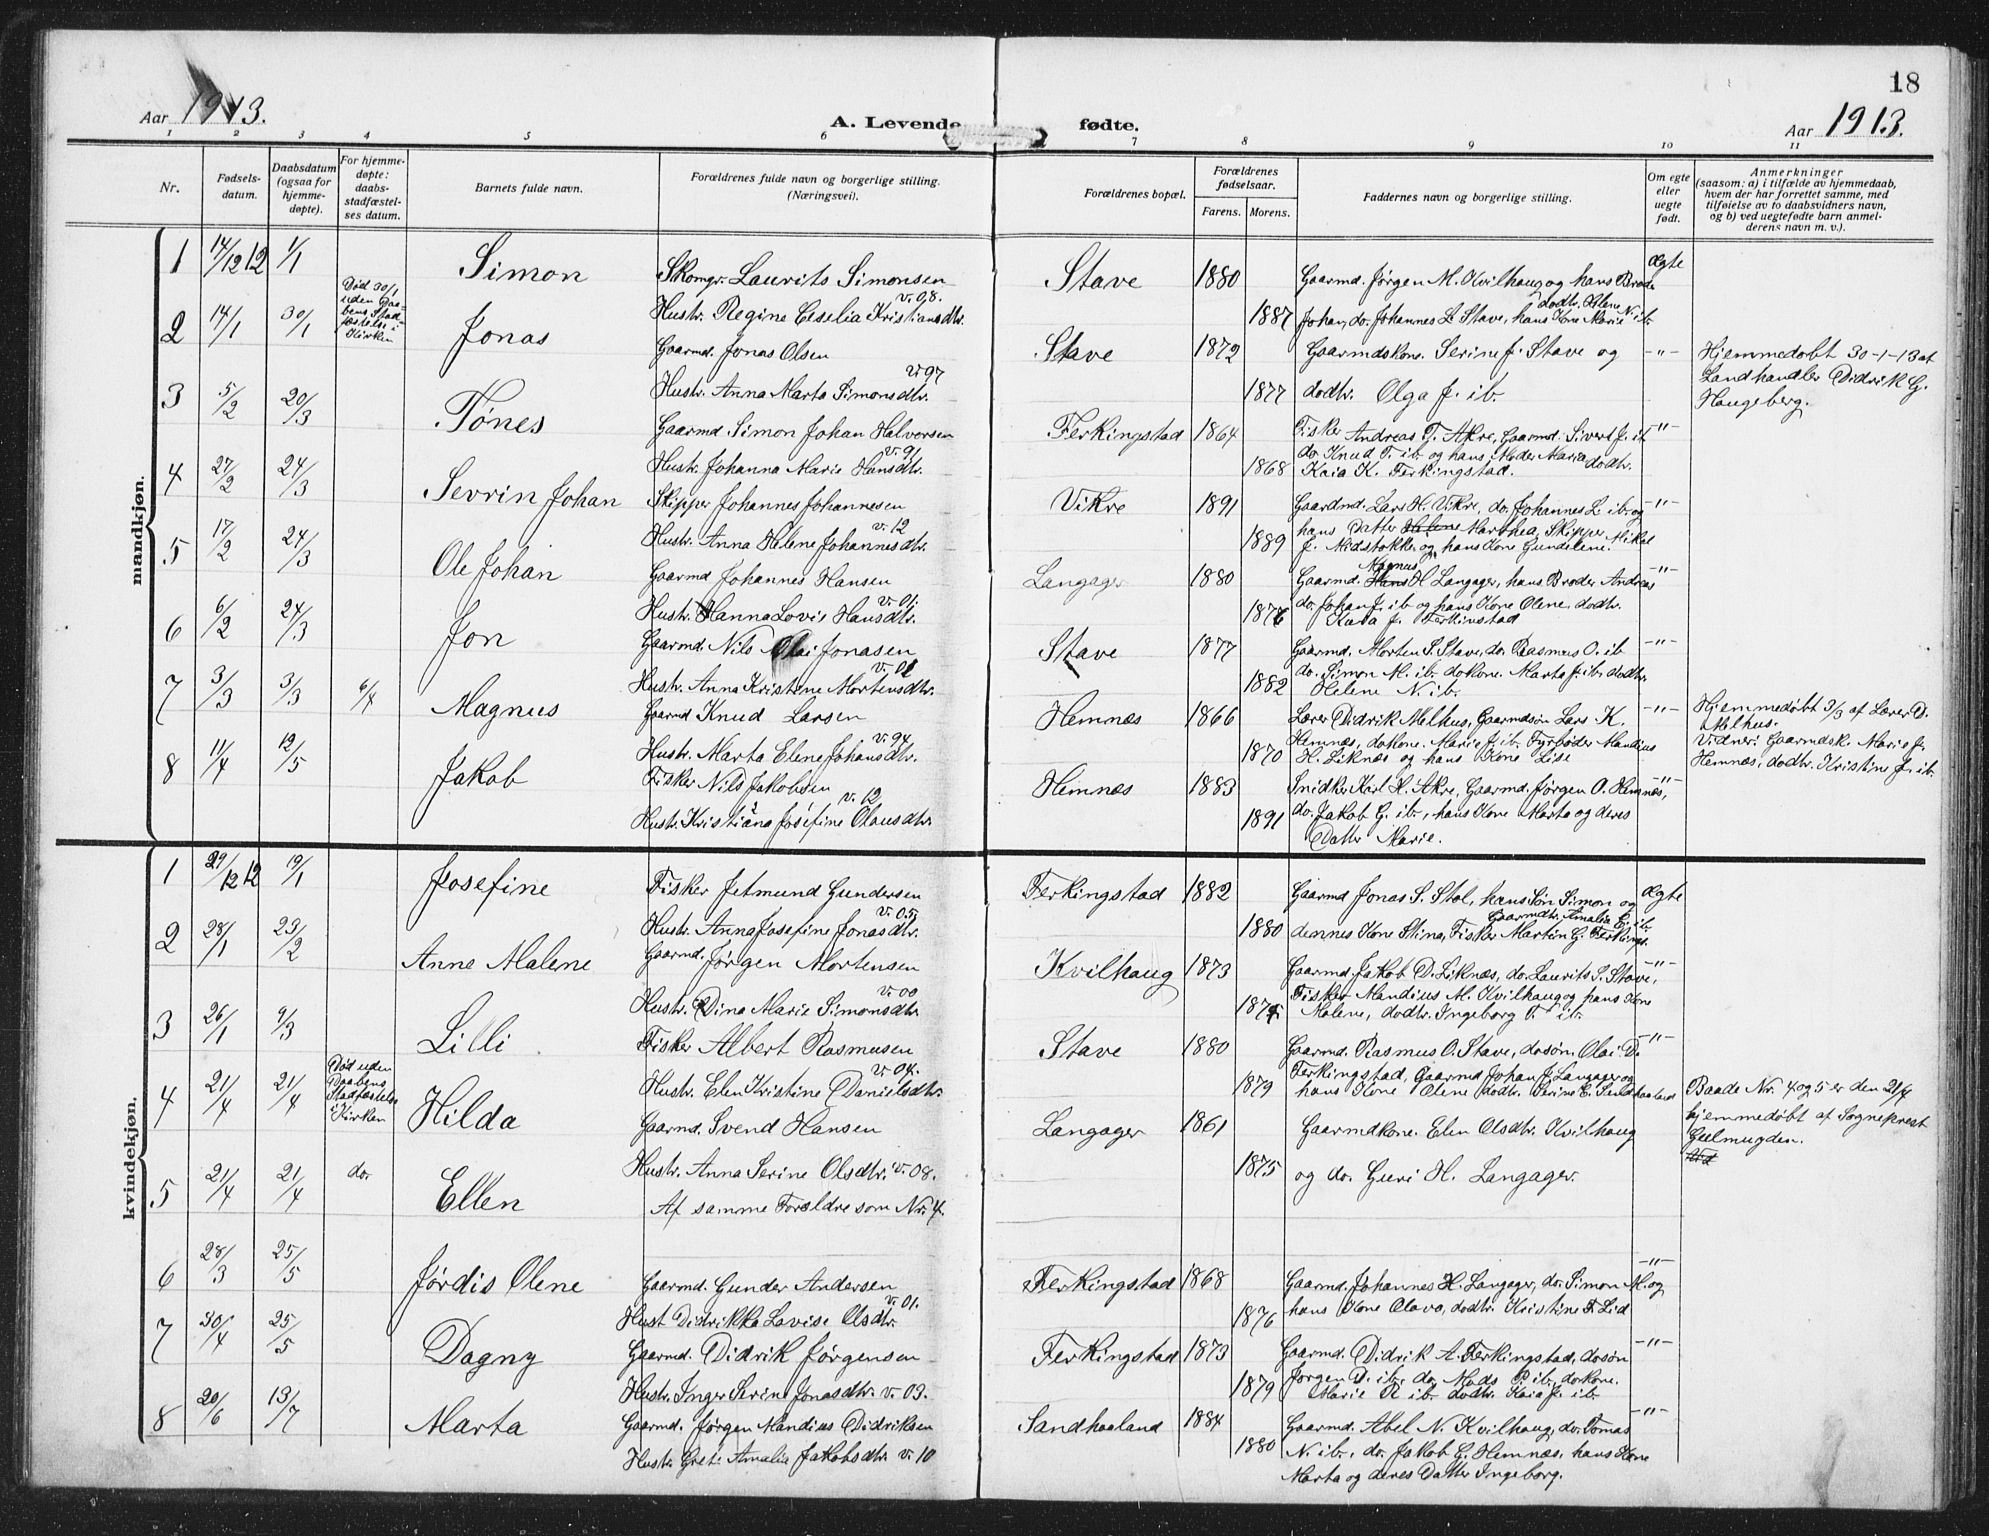 Aar 1913.
A. Levende fødte.
18
Aar 1913.
1 2 3 4 5 6 7 8 9 10 11
Nr.
Fødsels-
datum.
Daabsdatum
(ogsaa for
hjemme-
døpte).
For hjemme-
døpte:
daabs-
stadfæstel-
ses datum.
Barnets fulde navn.
Forældrenes fulde navn og borgerlige stilling.
(Næringsvei).
Forældrenes bopæl.
Forældrenes
fødselsaar.
Farens. Morens.
Faddernes navn og borgerlige stilling.
Om egte
eller
uegte
født.
Anmerkninger
(saasom: a) i tilfælde av hjemmedaab,
hvem der har forrettet samme, med
tilføielse av to daabsvidners navn,
og b) ved uegtefødte barn anmel-
derens navn m. v.).
mandkjøn.
1 14/12 12 1/1 Simon
Skomgr. Laurits Simonsen
v. 08.
Hustr. Regine Ceselia Kristiansdtr.
Stave 1880 1887
Gaarmd. Jørgen M. Kvilhaug og hans Brod.
dodtr. Helene N. ib.
Johan, do. Johannes L. Stave, hans Kone Marie
Ægte
2 14/1 30/1
Død 30/1
uden Daa-
bens Stad
fæstelse i
Kirken
Jonas
Gaarmd. Jonas Olsen
v. 97
Hustr. Anna Marta Simonsdtr.
Stave 1872 1877
Gaarmdskone. Serine J. Stave og
dodtr. Olga J. ib.
-"-
Hjemmedøbt 30-1-13 af
Landhandler Didrik G.
Haugeberg.
3 5/2 20/3 Tønes
Gaarmd Simon Johan Halvorsen
v. 91
Hustr. Johanna Marie Hansdtr.
Ferkingstad 1864 1868
Fisker Andreas T. Akre, Gaarmd. Sivert J. ib
do. Knud T. ib og hans Moder Maria dodtr.
Kaia K. Ferkingstad.
-"-
4 27/2 24/3 Sevrin Johan
Skipper Johannes Johannesen
v. 12
Hustr. Anna Helene Johannesdtr.
Vikre 1891 1889
Gaardmd. Lars H. Vikre, do. Johannes L. ib. og
hans Datter Helene Marthea, Skipper Mikal
J. Midstokke og hans Kone Gundelene.
-"-
5 17/2 24/3 Ole Johan
Gaarmd Johannes Hansen
v. 01.
Hustr. Hanna Lovis Hansdtr.
Langager 1880 1876
Magnus
Gaarmd. Hans H Langager, hans Broder Andreas
do. Johan J. ib og hans Kone Olene, dodtr.
Kaia J. Ferkinstad
-"-
6 6/2 24/3 Jon
Gaarmd. Nils Olai Jonasen
v. 01
Hustr. Anna Kristine Mortensdtr.
Stave 1877 1882
Gaarmd. Morten S. Stave, do. Rasmus O. ib
do. Simon M. ib. dokone. Marta J. ib. dodtr.
Helene N. ib.
-"-
7 3/3 3/3 6/4 Magnus
Gaarmd Knud Larsen
v. 94
Hustr. Marta Elene Johansdtr.
Hemnæs 1866 1870
Lærer Didrik Melhus, Gaarmdsøn Lars K.
Hemnæs, dokone. Marie J. ib. Fyrbøder Mandius
H. Liknæs og hans Kone Lise
-"-
Hjemmedøbt 3/3 af Lærer D.
Melhus.
Vidner: Gaarmdsk. Marie J.
Hemnæs, dodtr. Kristine J. ib.
8 11/4 12/5 Jakob
Fisker Nils Jakobsen
v. 12
Hustr. Kristiana Josefine Olausdtr.
Hemnæs 1883 1891
Snidker Karl K. Akre, Gaarmd. Jørgen O. Hemnæs,
do. Jakob G. ib., hans Kone Marta og deres
Datter Marie.
-"-
kvindekjøn.
1 29/12 12 19/1 Josefine
Fisker Jetmund Gundersen
v. 05.
Hustr. Anna Josefine Jonasdtr.
Ferkingstad 1882 1880
Gaarmd Jonas S. Stol, hans Søn Simon og
Gaarmdtr. Amalia E. ib.
dennes Kone Stina, Fisker Martin G. Ferkings.
Ægte
2 28/1 23/2 Anne Malene
Gaarmd. Jørgen Mortensen
v. 00
Hustr. Dina Marie Simonsdtr.
Kvilhaug 1873 1875
Gaarmd Jakob D. Liknæs, do. Laurits S. Stave,
Fisker Mandius M. Kvilhaug og hans Kone
Malene, dodtr. Ingeborg T. ib.
-"-
3 26/1 9/3 Lilli
Fisker Albert Rasmusen
v. 04.
Hustr. Elen Kristine Danielsdtr.
Stave 1880 1879
Gaarmd. Rasmus O. Stave, dosøn. Olai D.
Ferkingstad, Gaarmd Johan J. Langager og
hans Kone Olene dodtr. Serine E. Sandhaaland
-"-
4 21/4 21/4
Død uden
Daabens
Stadfæstelse
i Kirken
Hilda
Gaarmd. Svend Hansen
Hustr. Anna Serine Olsdtr. v. 08.
Langager 1861 1875
Gaarmdkone. Elen Olsdtr. Kvilhaug
og do. Guri H. Langager.
Baade Nr. 4 og 5 er den 21/4
hjemmedøbt af Sogneprest
Gjelmugden.
Vid
5 21/4 21/4 do. Ellen
Af samme Forældre som Nr. 4.
6 28/3 25/5 Jørdis Olene
Gaarmd. Gunder Andersen
v. 01.
Hust Didrikka Lovise Olsdtr.
Ferkingstad 1868 1876
Gaarmd. Johannes H. Langager, do. Simon M. og
hans Kone Olava, dodtr. Kristine S. Lid
-"-
7 30/4 25/5 Dagny
Gaarmd. Didrik Jørgensen
Hustr. Inger Serine Jonasdtr. v. 03.
Ferkingstad 1873 1879
Gaarmd. Didrik A. Ferkingstad, dosøn
Jørgen D. ib. do. Mads P. ib. dokone.
Marie R. ib. dodtr. Kaia J. ib.
-"-
8 20/6 13/7 Marta
Gaarmd. Jørgen Mandius Didriksen
Hustr. Grete Amalia Jakobsdtr v. 10
Sandhaaland 1884 1880
Gaarmd. Abel N. Kvilhaug, do. Tomas
N. ib., do. Jakob G. Hemnæs, hans Kone
Marta og deres Datter Ingeborg.
-"-